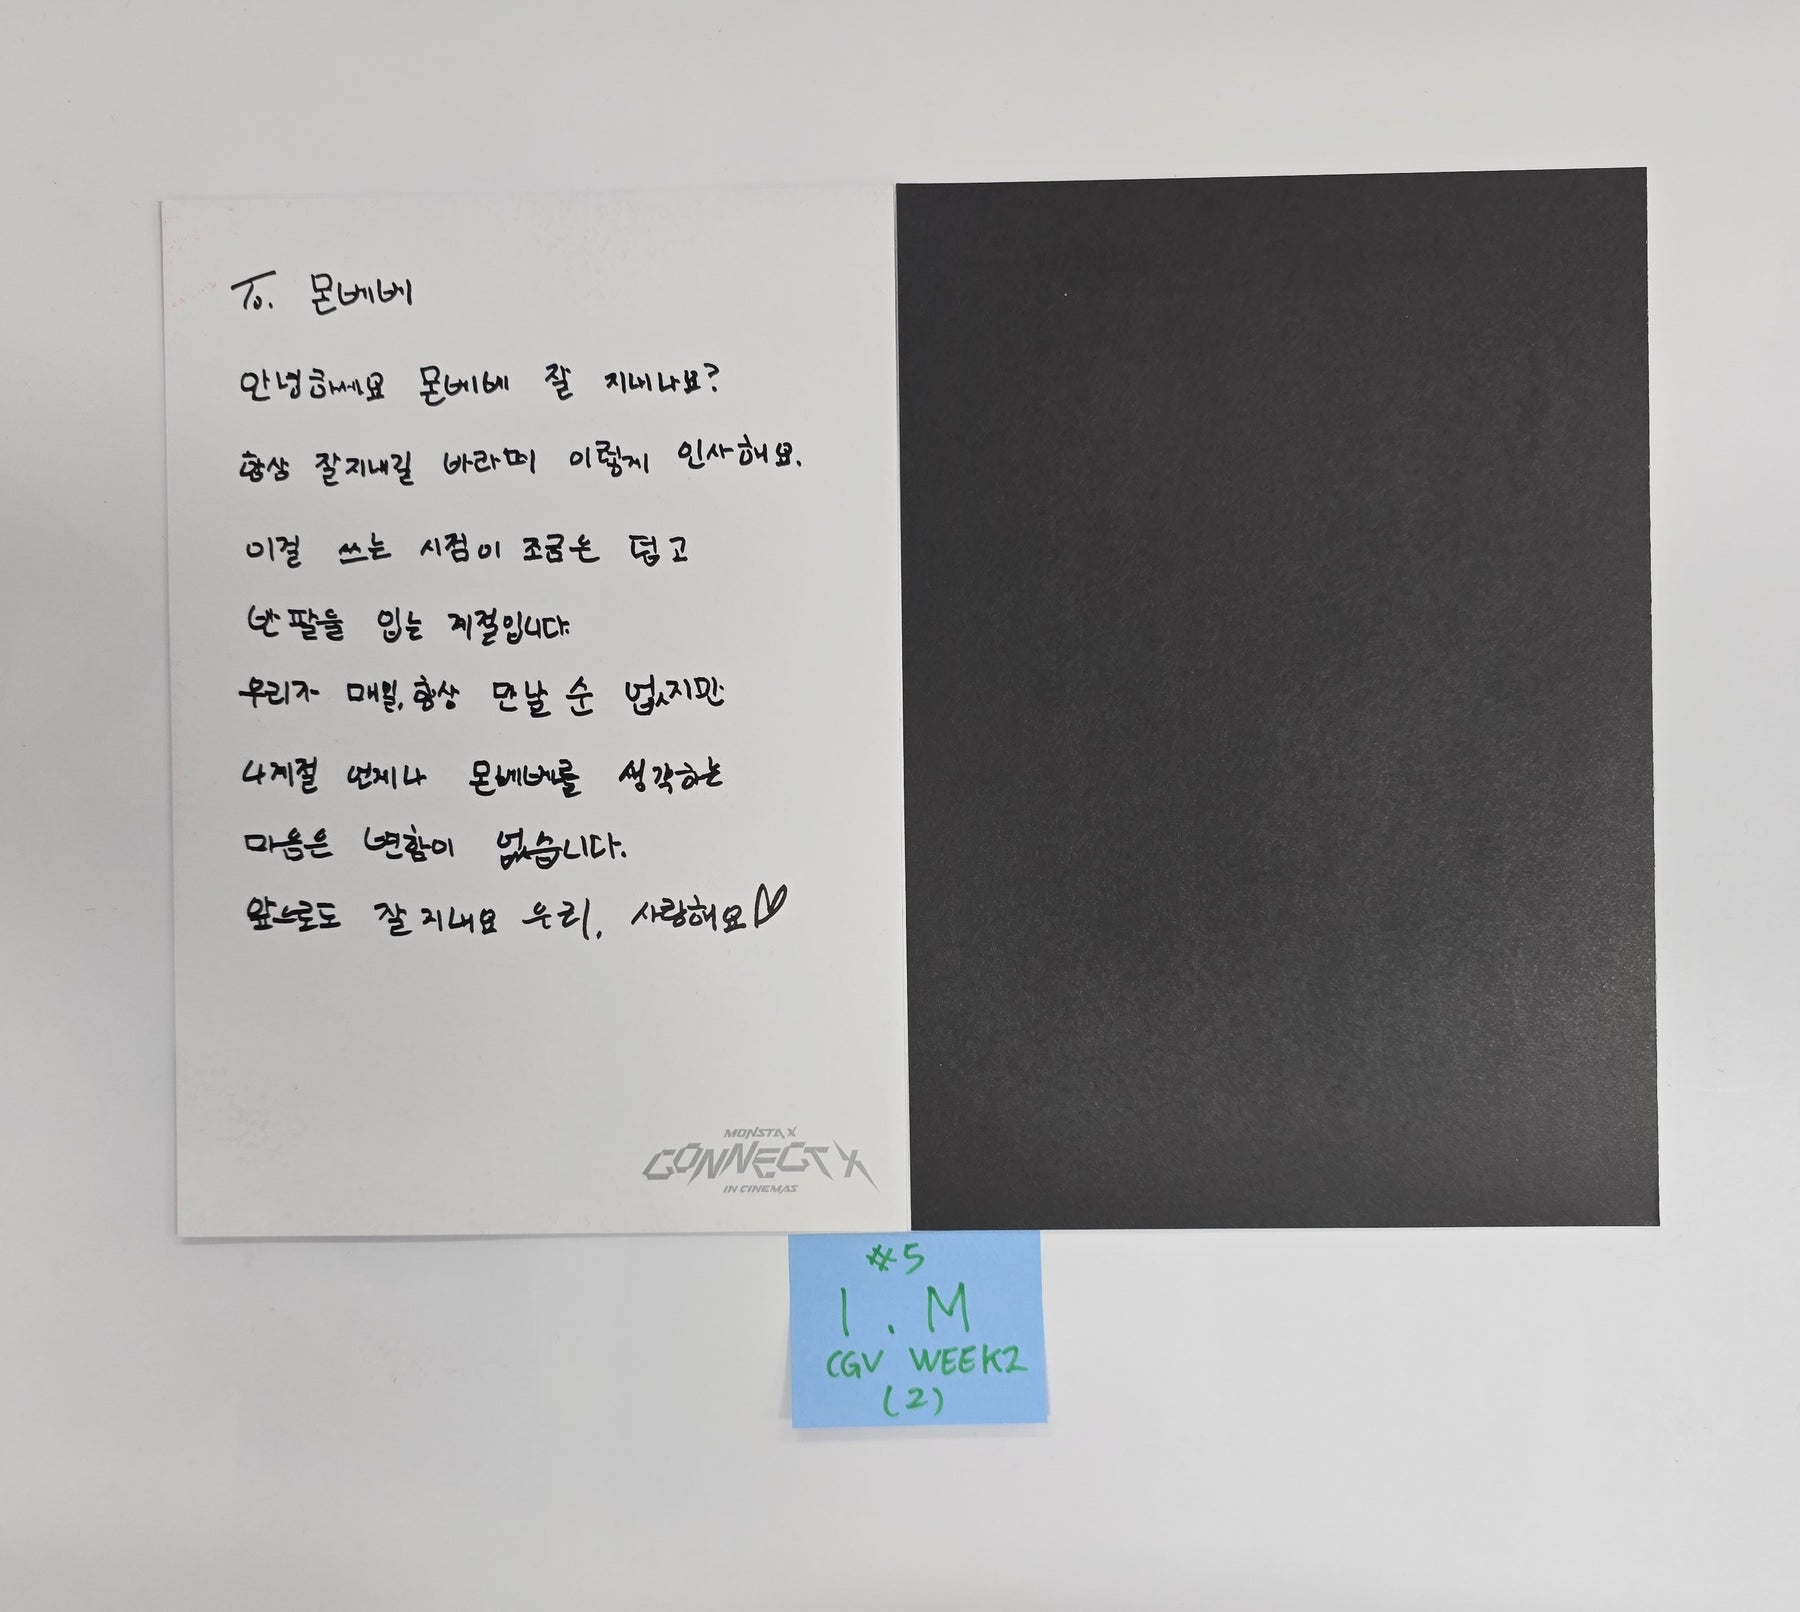 To. 몬베베
안녕하세요 몬베베 잘 지내나요?
항상 잘지내길 바라며 이렇게 인사해요.
이걸 쓰는 시점이 조금은 덥고
반팔을 입는 계절입니다.
우리가 매일, 항상 만날 순 없지만
4계절 언제나 몬베베를 생각하는
마음은 변함이 없습니다.
앞으로도 잘 지내요 우리, 사랑해요♡
MONSTA X
CONNECT X
IN CINEMAS
#5
I.M
CGV WEEK2
(2)